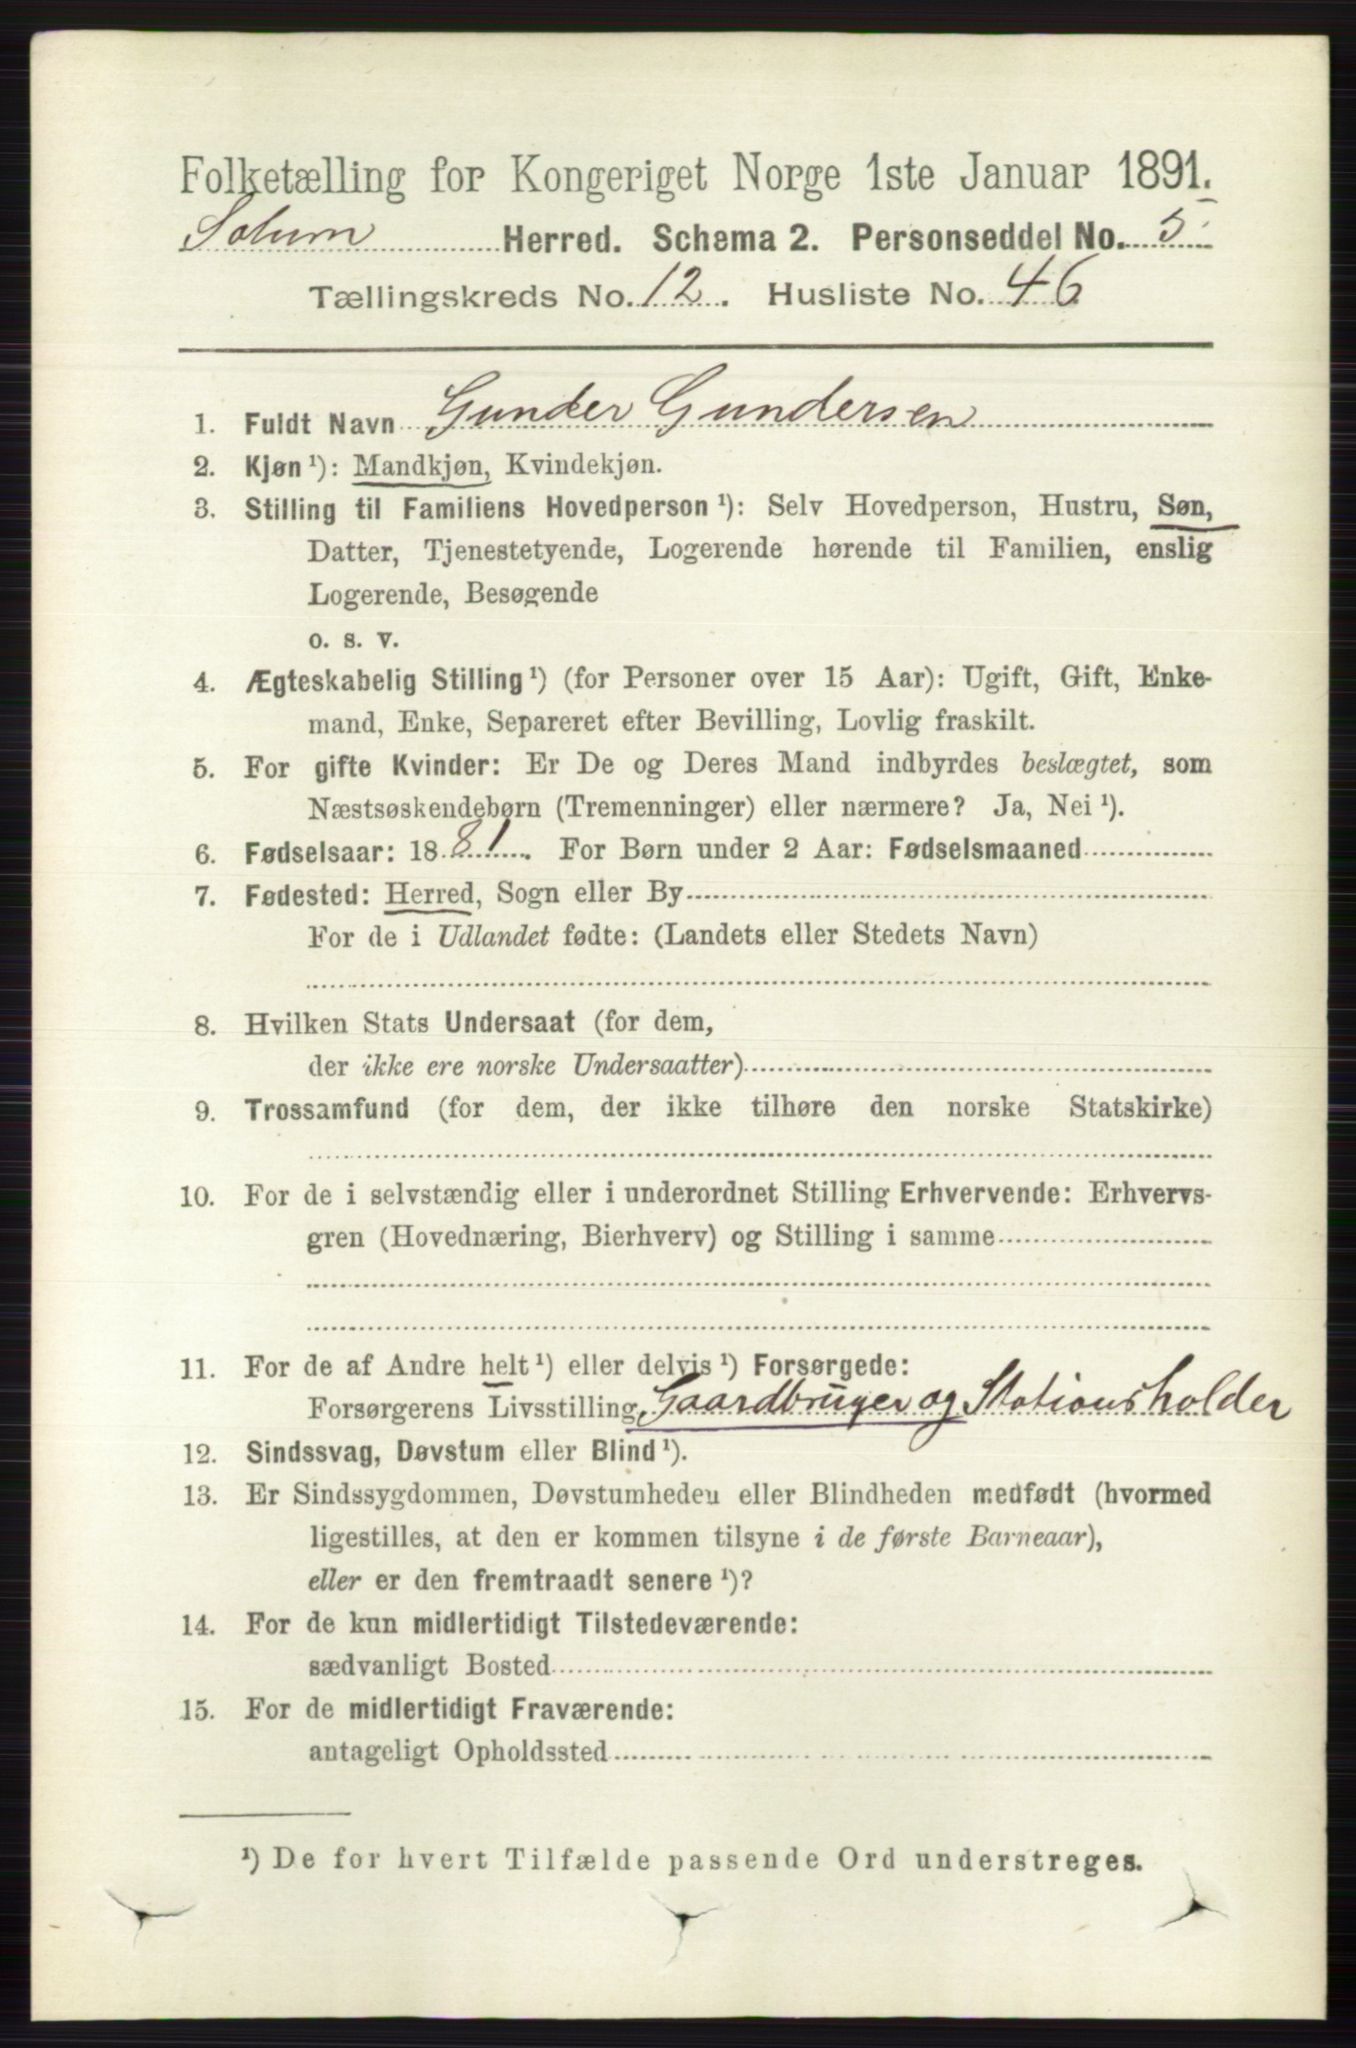 Folketælling for Kongeriget Norge 1ste Januar 1891.
Solum Herred. Schema 2. Personseddel No. 5
Tællingskreds No. 12. Husliste No. 46
1. Fuldt Navn Gunder Gundersen
2. Kjøn ¹): Mandkjøn, Kvindekjøn.
3. Stilling til Familiens Hovedperson ¹): Selv Hovedperson, Hustru, Søn,
Datter, Tjenestetyende, Logerende hørende til Familien, enslig
Logerende, Besøgende
o. s. v.
4. Ægteskabelig Stilling ¹) (for Personer over 15 Aar): Ugift, Gift, Enke-
mand, Enke, Separeret efter Bevilling, Lovlig fraskilt.
5. For gifte Kvinder: Er De og Deres Mand indbyrdes beslægtet, som
Næstsøskendebørn (Tremenninger) eller nærmere? Ja, Nei ¹).
6. Fødselsaar: 1881. For Børn under 2 Aar: Fødselsmaaned
7. Fødested: Herred, Sogn eller By
For de i Udlandet fødte: (Landets eller Stedets Navn)
8. Hvilken Stats Undersaat (for dem,
der ikke ere norske Undersaatter)
9. Trossamfund (for dem, der ikke tilhøre den norske Statskirke)
10. For de i selvstændig eller i underordnet Stilling Erhvervende: Erhvervs-
gren (Hovednæring, Bierhverv) og Stilling i samme
11. For de af Andre helt ¹) eller delvis ¹) Forsørgede:
Forsørgerens Livsstilling Gaardbruger og Stationsholder
12. Sindssvag, Døvstum eller Blind ¹).
13. Er Sindssygdommen, Døvstumheden eller Blindheden medfødt (hvormed
ligestilles, at den er kommen tilsyne i de første Barneaar),
eller er den fremtraadt senere ¹)?
14. For de kun midlertidigt Tilstedeværende:
sædvanligt Bosted
15. For de midlertidigt Fraværende:
antageligt Opholdssted
¹) De for hvert Tilfælde passende Ord understreges.